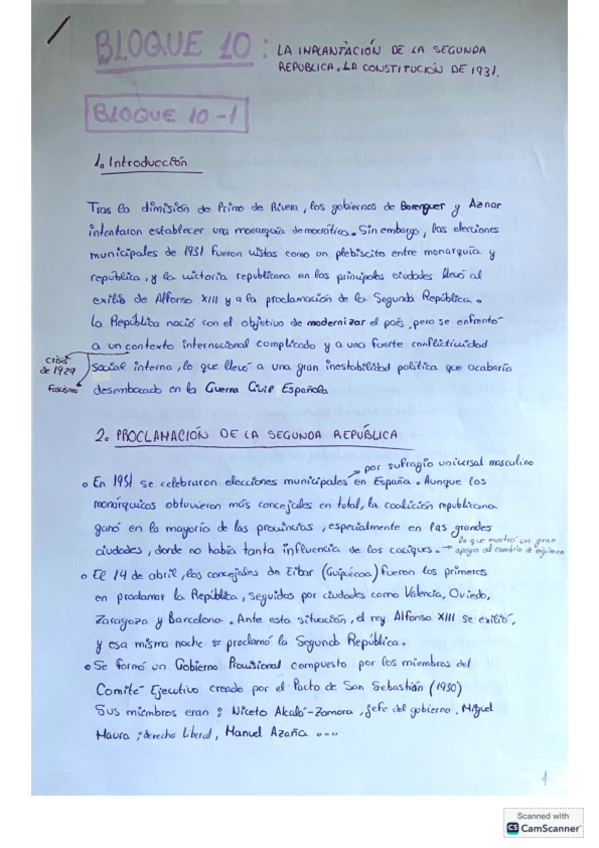 BLOQUE 10: LA IMPLANTACIÓN DE LA SEGUNDA
REPÚBLICA. LA CONSTITUCIÓN DE 1931.
BLOQUE 10-1
1. Introducción
Tras la dimisión de Primo de Rivera, los gobiernos de Berenguer y Aznar
intentaron establecer una monarquía democrática. Sin embargo, las elecciones
municipales de 1931 fueron vistas como un plebiscito entre monarquía y
república, y la victoria republicana en las principales ciudades llevó al
exilio de Alfonso XIII y a la proclamación de la Segunda República.
La República nació con el objetivo de modernizar el país, pero se enfrentó
a un contexto internacional complicado y a una fuerte conflictividad
social interna, lo que llevó a una gran inestabilidad política que acabaría
desembocado en la Guerra Civil Española
Crisis
de 1929
Fascismo
2. PROCLAMACIÓN DE LA SEGUNDA REPÚBLICA
por sufragio universal masculino
En 1931 se celebraron elecciones municipales en España. Aunque los
monárquicos obtuvieron más concejales en total, la coalición republicana
ganó en la mayoría de las provincias, especialmente en las grandes
ciudades, donde no había tanta influencia de los caciques. → lo que mostró un gran
apoyo al cambio de régimen
El 14 de abril, los concejales de Eibar (Guipúzcoa) fueron los primeros
en proclamar la República, seguidos por ciudades como Valencia, Oviedo,
Zaragoza y Barcelona. Ante esta situación, el rey Alfonso XIII se exilió,
y esa misma noche se proclamó la Segunda República.
Se formó un Gobierno Provisional compuesto por los miembros del
Comité Ejecutivo creado por el Pacto de San Sebastián (1930)
Sus miembros eran: Niceto Alcalá-Zamora, jefe del gobierno. Miguel
Maura; derecha Liberal, Manuel Azaña ...
1
Scanned with
CS CamScanner